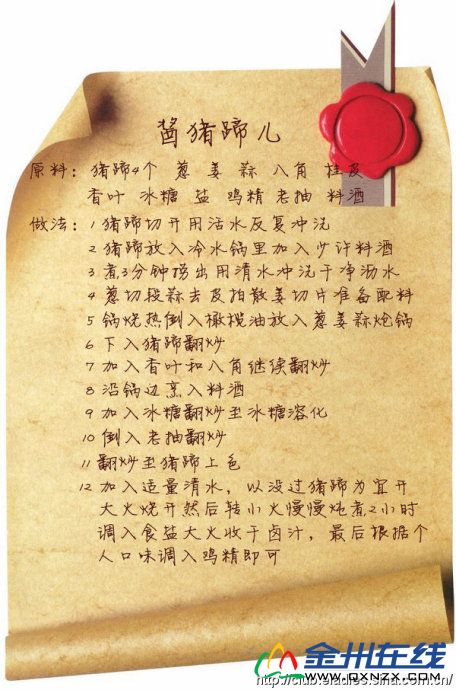 酱猪蹄儿
原料：猪蹄4个 葱 姜 蒜 八角 桂皮
香叶 冰糖 盐 鸡精 老抽 料酒
做法：1 猪蹄切开用活水反复冲洗
2 猪蹄放入冷水锅里加入少许料酒
3 煮3分钟捞出用清水冲洗干净沥水
4 葱切段蒜去皮拍散姜切片准备配料
5 锅烧热倒入橄榄油放入葱姜蒜炝锅
6 下入猪蹄翻炒
7 加入香叶和八角继续翻炒
8 沿锅边烹入料酒
9 加入冰糖翻炒至冰糖溶化
10 倒入老抽翻炒
11 翻炒至猪蹄上色
12 加入适量清水，以没过猪蹄为宜开
大火烧开然后转小火慢慢炖煮2小时
调入食盐大火收干卤汁，最后根据个
人口味调入鸡精即可
金州在线
www.QXNZX.COM
http://club.eladies.sina.com.cn/